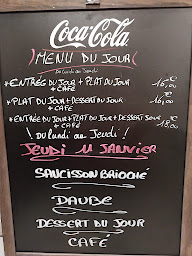 Coca-Cola
MENU DU JOUR
Du Lundi au Jeudi
*ENTRÉE DU JOUR + PLAT DU JOUR
+ CAFÉ 16,00€
*PLAT DU JOUR + DESSERT DU JOUR
+ CAFÉ 16,00€
*ENTRÉE DU JOUR + PLAT DU JOUR + DESSERT DU JOUR
+ CAFÉ 18,00€
! Du lundi au Jeudi !
JEUDI 11 JANVIER
SAUCISSON BRIOCHÉ
DAUBE
DESSERT DU JOUR
CAFÉ